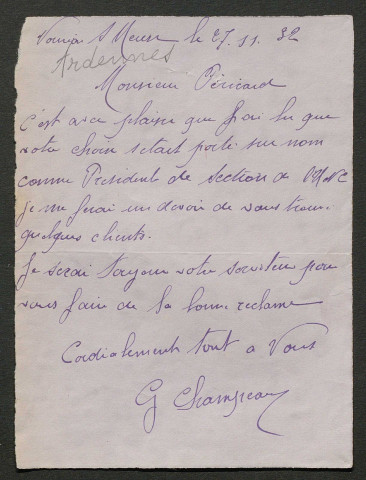 Vouziers S Meuse le 27.11.32
Ardennes
Monsieur Péricard
C'est avec plaisir que j'ai lu que
votre choix s'etait porté sur nom
comme President de section de
je me ferai un devoir de vous trouver
quelques clients.
Je serai toujours votre serviteur pour
vous faire de la bonne reclame
Cordialement tout a Vous
G Champeaux